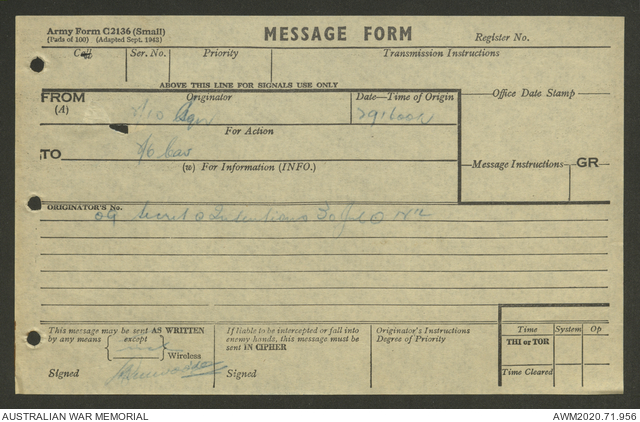 Army Form C2136 (Small)
(Pads of 100) (Adapted Sept. 1943)
MESSAGE FORM
Register No.
Call
Ser. No.
Priority
Transmission Instructions
ABOVE THIS LINE FOR SIGNALS USE ONLY
FROM
(A)
Originator
Date—Time of Origin
Office Date Stamp
For Action
TO
(W) For Information (INFO.)
Message Instructions
GR
ORIGINATOR'S No.
Secret
This message may be sent AS WRITTEN
by any means except
Wireless
Signed
If liable to be intercepted or fall into
enemy hands, this message must be
sent IN CIPHER
Signed
Originator's Instructions
Degree of Priority
Time
System
Op
THI or TOR
Time Cleared
AUSTRALIAN WAR MEMORIAL
AWM2020.71.956